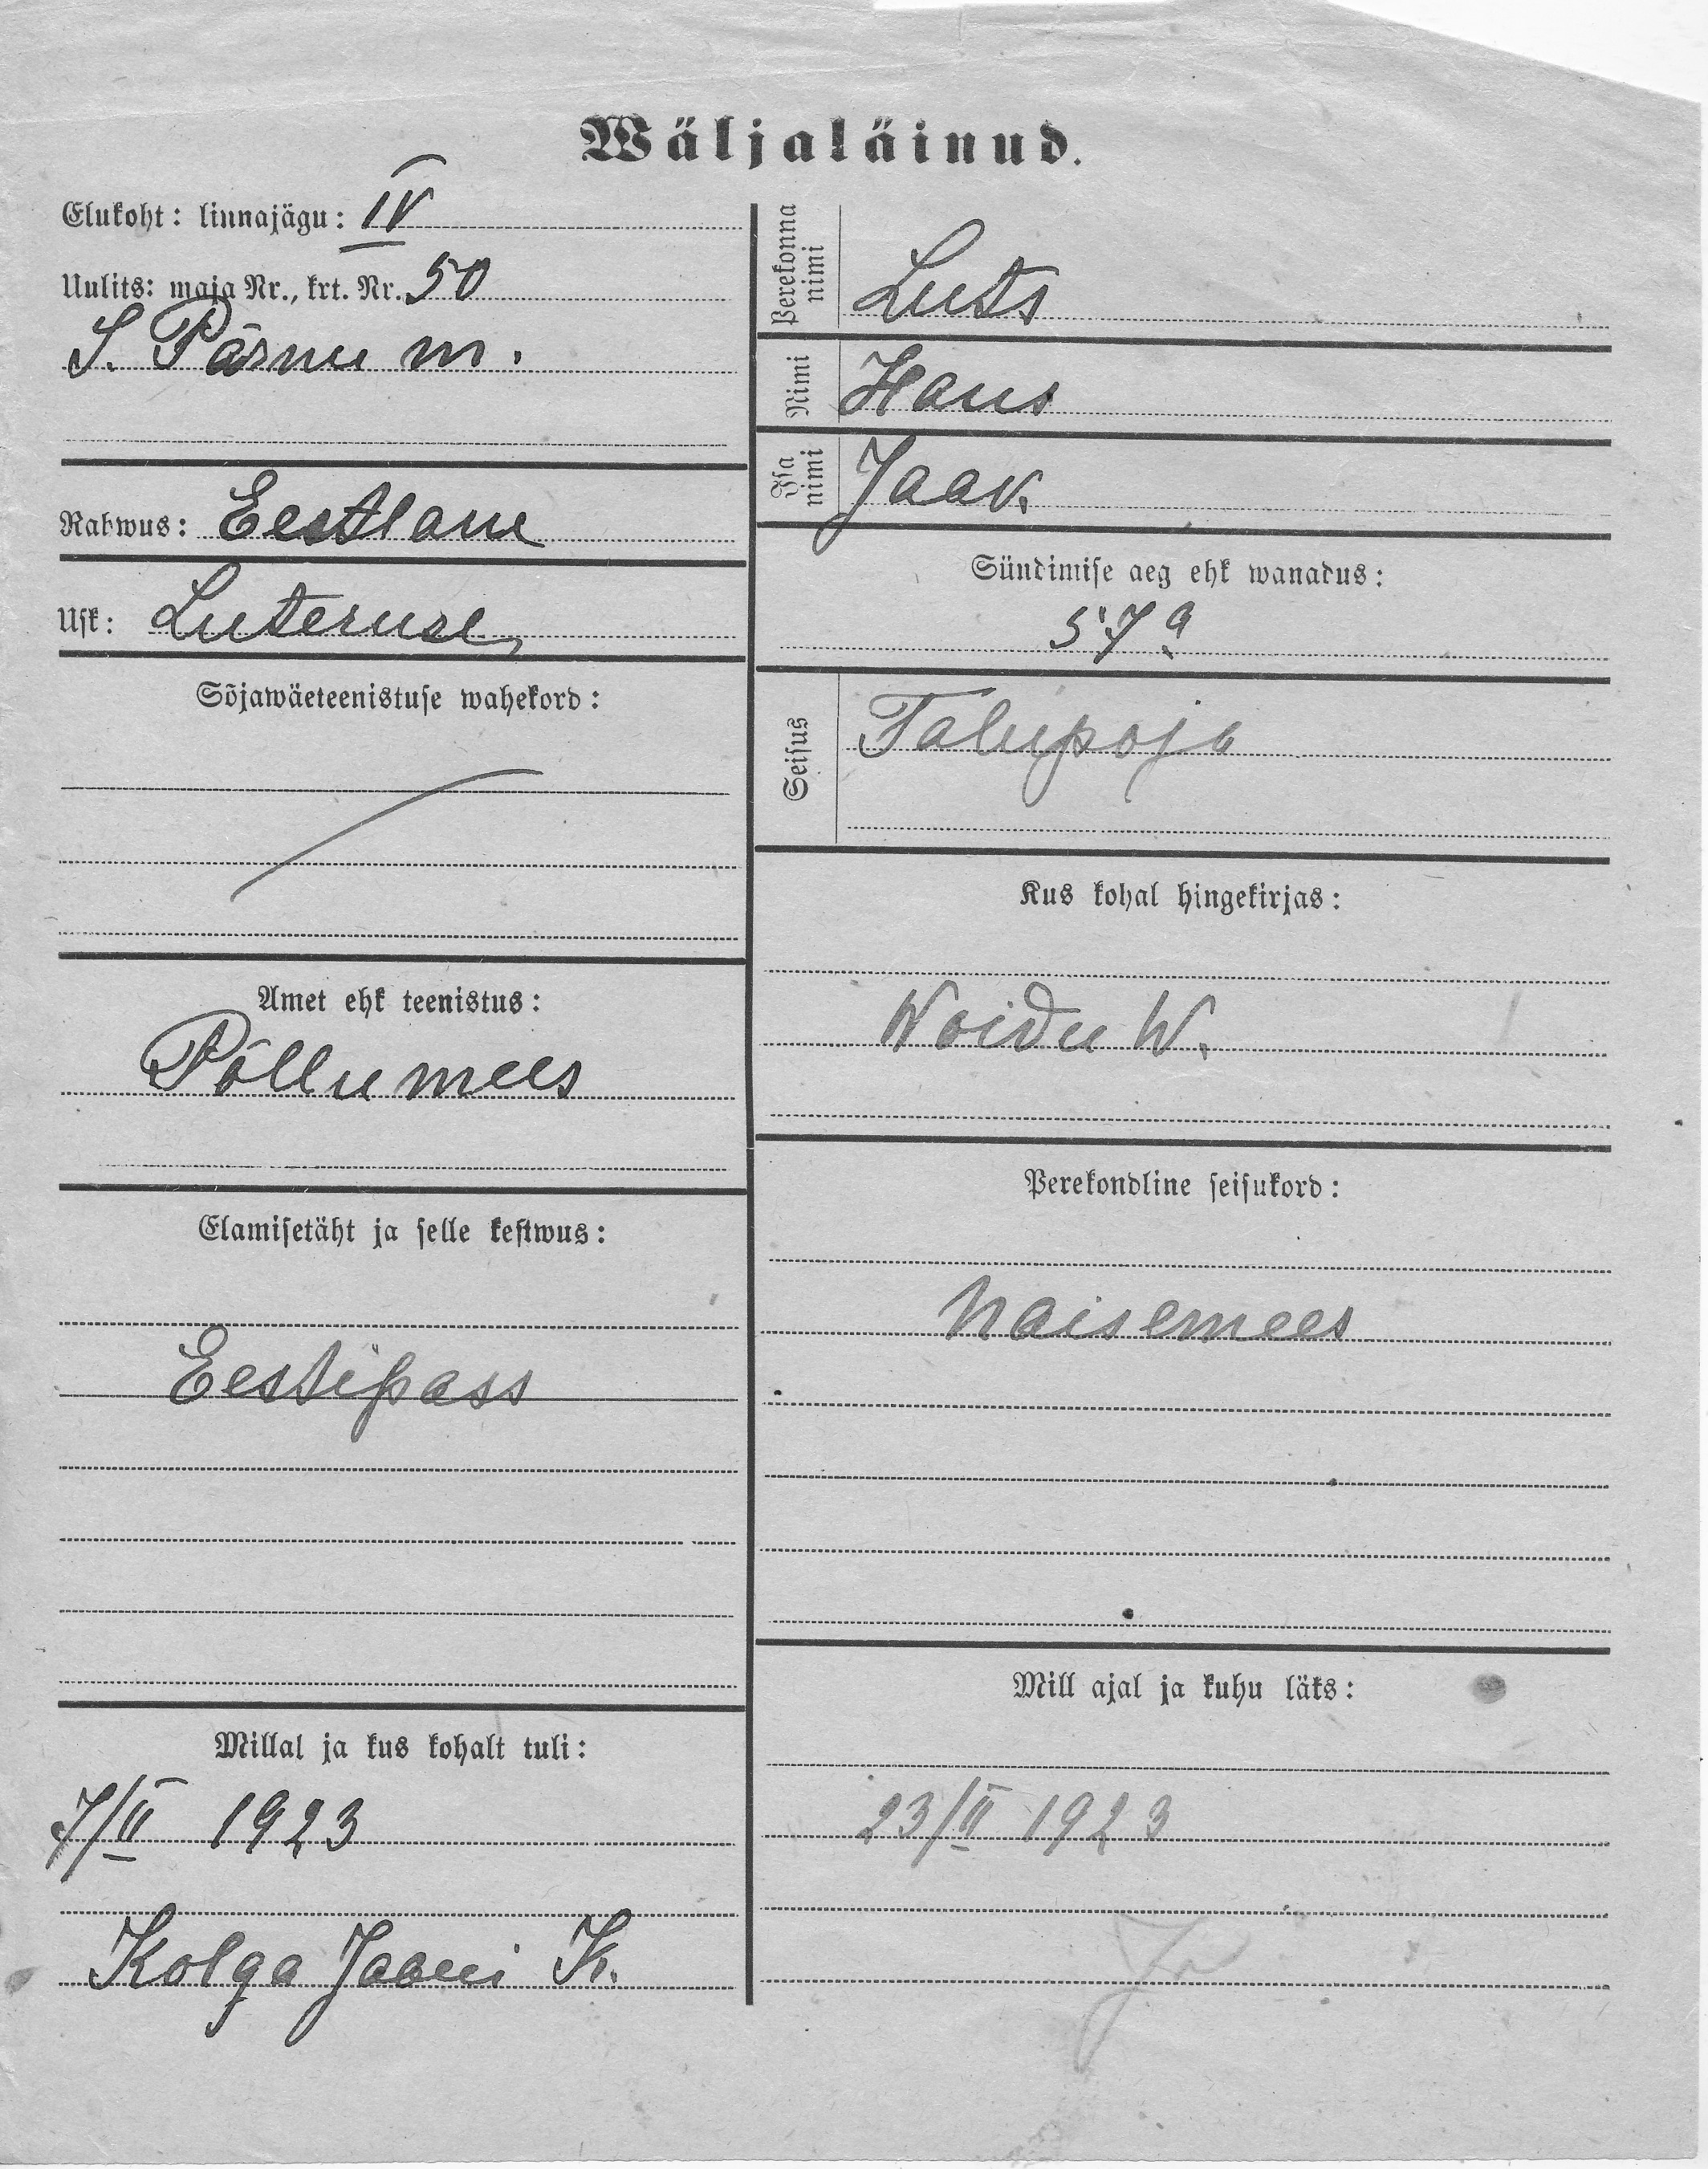 Wäljaläinud.
Elukoht: linnajägu: IV
Uulits: maja Nr., krt. Nr. 50
S. Pärnu m.
Rahwus: Eestlane
Usk: Luteruse
Sõjawäeteenistuse wahekord:
Amet ehk teenistus:
Põllumees
Elamisetäht ja selle kestwus:
Eestipass
Millal ja kus kohalt tuli:
7/II 1923
Kolga Jaani K.
Perekonna nimi Luts
Nimi Hans
Isa nimi Jaav.
Sündimise aeg ehk wanadus:
57 a
Seisus Talupoja
Kus kohal hingekirjas:
Woidu W.
Perekondline seisukord:
Naisemees
Mill ajal ja kuhu läks:
23/II 1923